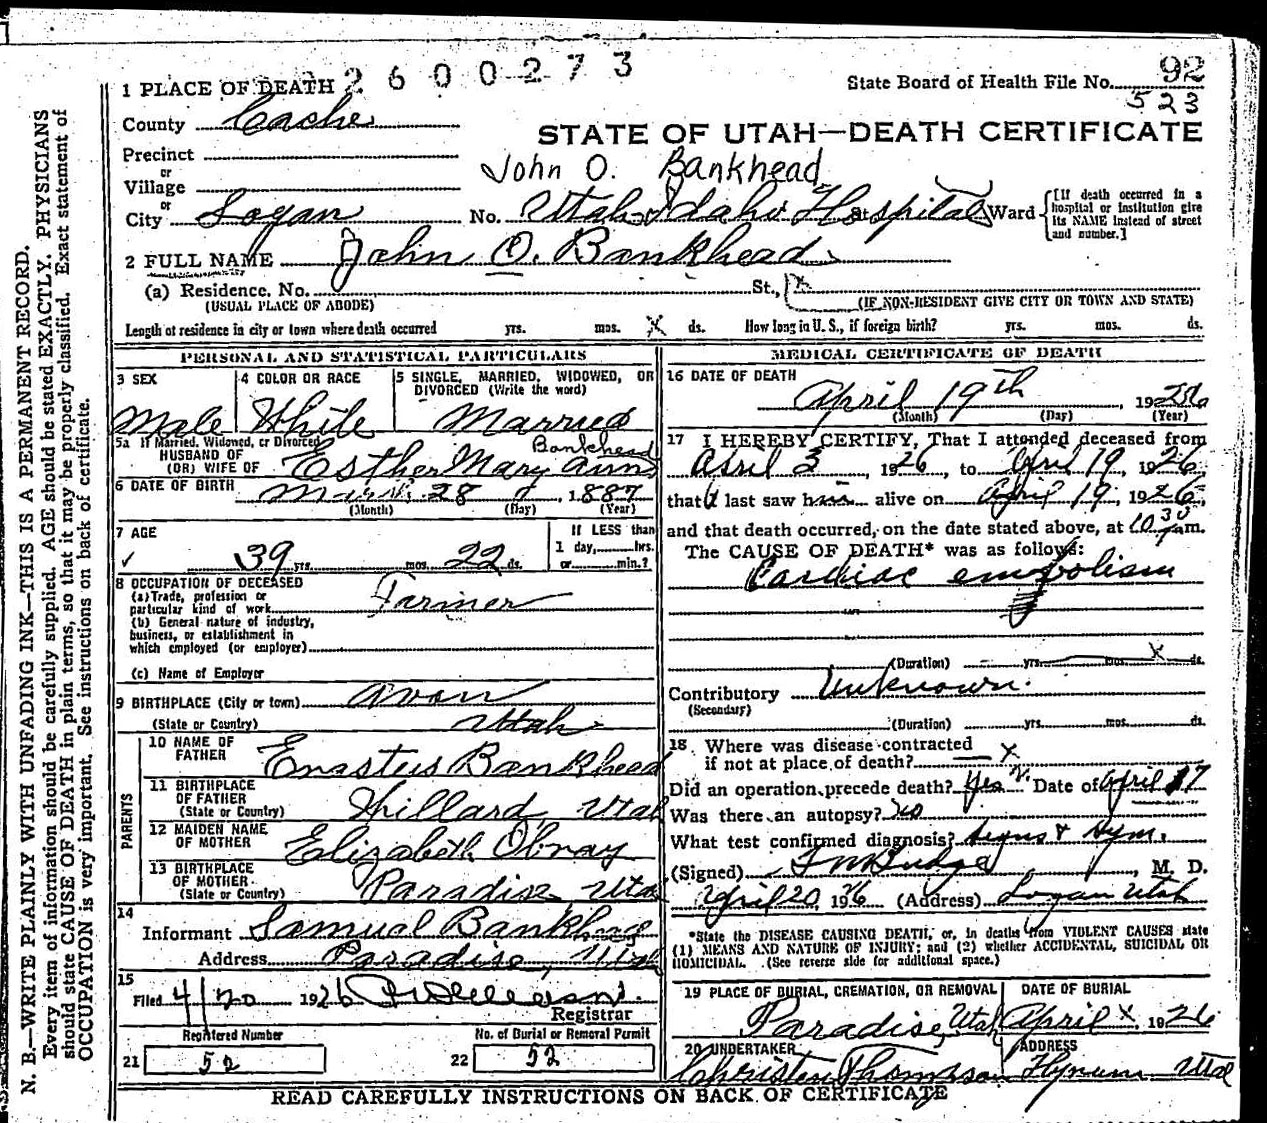 1 PLACE OF DEATH 2600273
State Board of Health File No. 92
523
County Cache
STATE OF UTAH—DEATH CERTIFICATE
Precinct
or
John O. Bankhead
Village
or
City Logan No. Utah-Idaho Hospital St. Ward
[If death occurred in a hospital or institution give its NAME instead of street and number.]
2 FULL NAME John O. Bankhead
(a) Residence. No. St., x
(USUAL PLACE OF ABODE) (IF NON-RESIDENT GIVE CITY OR TOWN AND STATE)
Length of residence in city or town where death occurred yrs. mos. X ds. How long in U. S., if foreign birth? yrs. mos. ds.
PERSONAL AND STATISTICAL PARTICULARS
3 SEX
Male
4 COLOR OR RACE
White
5 SINGLE, MARRIED, WIDOWED, OR DIVORCED (Write the word)
Married
5a If Married, Widowed, or Divorced
HUSBAND OF
(OR) WIFE OF Esther Mary Ann Bankhead
6 DATE OF BIRTH March 28, 1887
(Month) (Day) (Year)
7 AGE
39 yrs. mos. 22 ds.
If LESS than
1 day, hrs.
or min.?
8 OCCUPATION OF DECEASED
(a) Trade, profession or
particular kind of work Farmer
(b) General nature of industry,
business, or establishment in
which employed (or employer)
(c) Name of Employer
9 BIRTHPLACE (City or town) Avon
(State or Country) Utah
PARENTS
10 NAME OF FATHER Erastus Bankhead
11 BIRTHPLACE OF FATHER
(State or Country) Hillard Utah
12 MAIDEN NAME OF MOTHER Elizabeth Obray
13 BIRTHPLACE OF MOTHER
(State or Country) Paradise Utah
14
Informant Samuel Bankhead
Address Paradise, Utah
15
Filed 4/20 1926
Registrar
Registered Number
21 52
No. of Burial or Removal Permit
22 52
MEDICAL CERTIFICATE OF DEATH
16 DATE OF DEATH
April 19th, 192
(Month) (Day) (Year)
17 I HEREBY CERTIFY, That I attended deceased from
April 3, 1926, to April 19, 1926,
that I last saw him alive on April 19, 1926,
and that death occurred, on the date stated above, at 10 30 m.
The CAUSE OF DEATH* was as follows:
Cardiac embolism
(Duration) yrs. mos. X ds.
Contributory Unknown.
(Secondary)
(Duration) yrs. mos. ds.
18 Where was disease contracted
if not at place of death? X
Did an operation precede death? Yes Date of April 17
Was there an autopsy? No
What test confirmed diagnosis? Signs & Sym.
(Signed) Budge, M. D.
April 20, 1926 (Address) Logan Utah
*State the DISEASE CAUSING DEATH, or, in deaths from VIOLENT CAUSES state
(1) MEANS AND NATURE OF INJURY; and (2) whether ACCIDENTAL, SUICIDAL OR
HOMICIDAL. (See reverse side for additional space.)
19 PLACE OF BURIAL, CREMATION, OR REMOVAL
Paradise, Utah
DATE OF BURIAL
April X, 1926
20 UNDERTAKER
Christen Thomason
ADDRESS
Hyrum Utah
READ CAREFULLY INSTRUCTIONS ON BACK OF CERTIFICATE
N. B.—WRITE PLAINLY WITH UNFADING INK—THIS IS A PERMANENT RECORD.
Every item of information should be carefully supplied. AGE should be stated EXACTLY. PHYSICIANS
should state CAUSE OF DEATH in plain terms, so that it may be properly classified. Exact statement of
OCCUPATION is very important. See instructions on back of certificate.